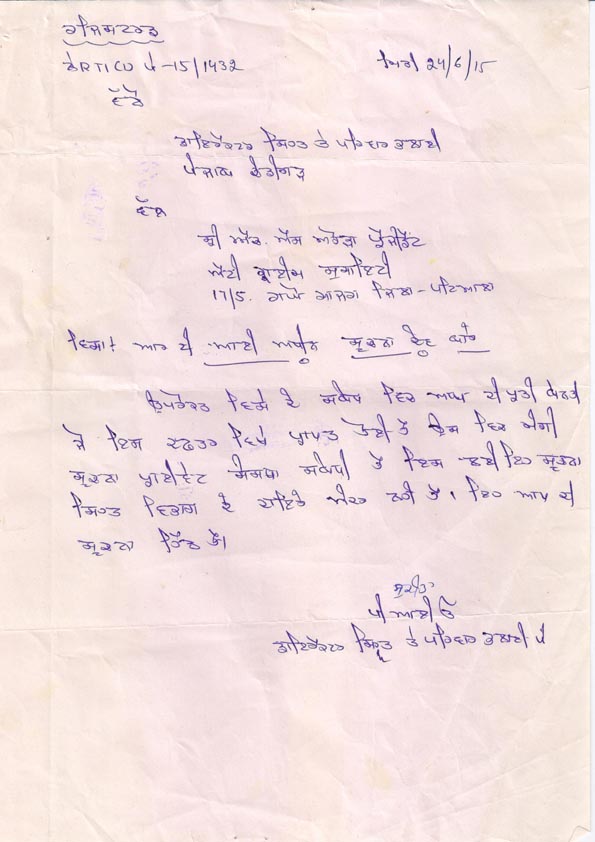 ਰਜਿਸਟਰਡ
ਨੰ RTICU ਪੰ-15/1432 ਮਿਤੀ 24/6/15
ਵੱਲੋਂ
ਡਾਇਰੈਕਟਰ ਸਿਹਤ ਤੇ ਪਰਿਵਾਰ ਭਲਾਈ
ਪੰਜਾਬ ਚੰਡੀਗੜ੍ਹ
ਵੱਲ
ਸ੍ਰੀ ਐਸ. ਐਸ ਅਰੋੜਾ ਪ੍ਰੈਜੀਡੈਂਟ
ਐਂਟੀ ਕ੍ਰਾਈਮ ਸੁਸਾਇਟੀ
17/5. ਜ਼ਿਲਾ - ਪਟਿਆਲਾ
ਵਿਸ਼ਾ: ਆਰ ਟੀ ਆਈ ਅਧੀਨ ਸੂਚਨਾ ਦੇਣ ਬਾਰੇ
ਉਪਰੋਕਤ ਵਿਸ਼ੇ ਦੇ ਸਬੰਧ ਵਿਚ ਆਪ ਦੀ ਪ੍ਰਤੀ ਬੇਨਤੀ
ਜੋ ਇਸ ਦਫਤਰ ਵਿਖੇ ਪ੍ਰਾਪਤ ਹੋਈ ਹੈ ਉਸ ਵਿਚ ਮੰਗੀ
ਸੂਚਨਾ ਪ੍ਰਾਈਵੇਟ ਸੰਸਥਾ ਸਬੰਧੀ ਹੈ ਇਸ ਲਈ ਇਹ ਸੂਚਨਾ
ਸਿਹਤ ਵਿਭਾਗ ਦੇ ਦਾਇਰੇ ਅੰਦਰ ਨਹੀਂ ਹੈ। ਇਹ ਆਪ ਦੀ
ਸੂਚਨਾ ਹਿੱਤ ਹੈ।
ਪੀ ਆਈ ਓ
ਡਾਇਰੈਕਟਰ ਸਿਹਤ ਤੇ ਪਰਿਵਾਰ ਭਲਾਈ ਪੰ